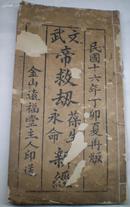 民國十六年丁卯夏再版
文武
帝救劫
葆生
永命
新經
金山遠福堂主人印送